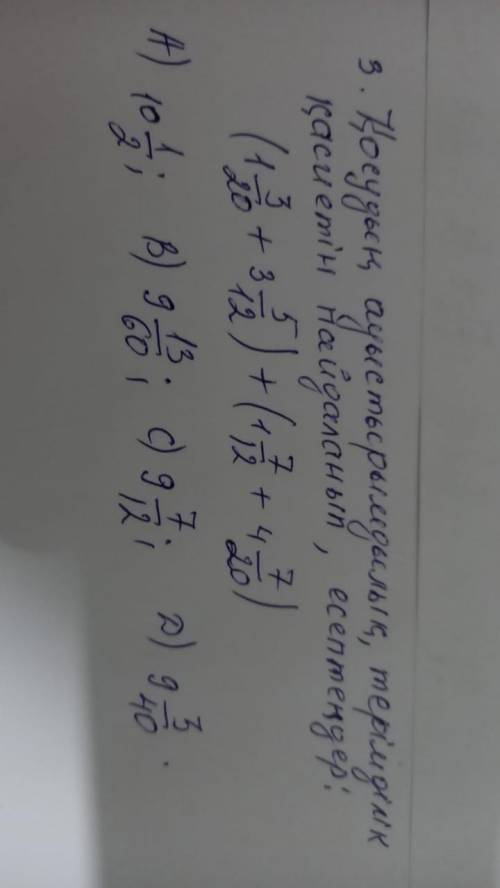 3. Қосудың ауыстырымдылық, терімділік
қасиетін пайдаланып, есептеңдер:
(1 3/20 + 3 5/12) + (1 7/12 + 4 7/20)
A) 10 1/2; B) 9 13/60; C) 9 7/12; D) 9 3/40.